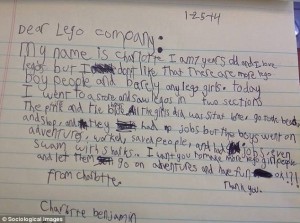 1-25-14
Dear Lego company:
My name is Charlotte. I am 7 years old and I love
legos but I don't like that there are more lego
boy people and barely any lego girls. today
I went to a store and saw legos in two sections
The pink and the blue. All the girls did was sit at home, go to the beach,
and shop, and they had no jobs but the boys went on
adventures, worked, saved people, and had jobs, even
swam with sharks. I want you to make more lego girl people
and let them go on adventures and have fun ok!?!
Thank you.
From Charlotte.
Charlotte Benjamin
© Sociological Images